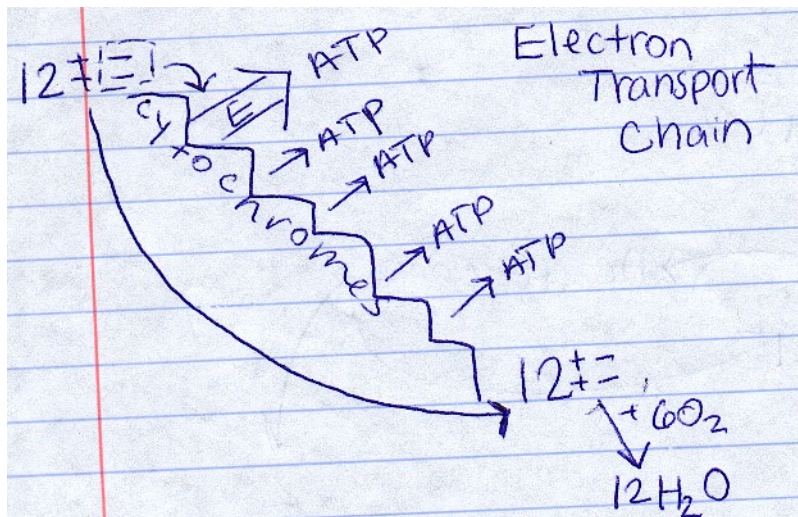 Electron
Transport
Chain
12 ‡ =
ATP
E
cytochromes
ATP
ATP
ATP
ATP
12 ‡ =
+ 6O₂
12H₂O